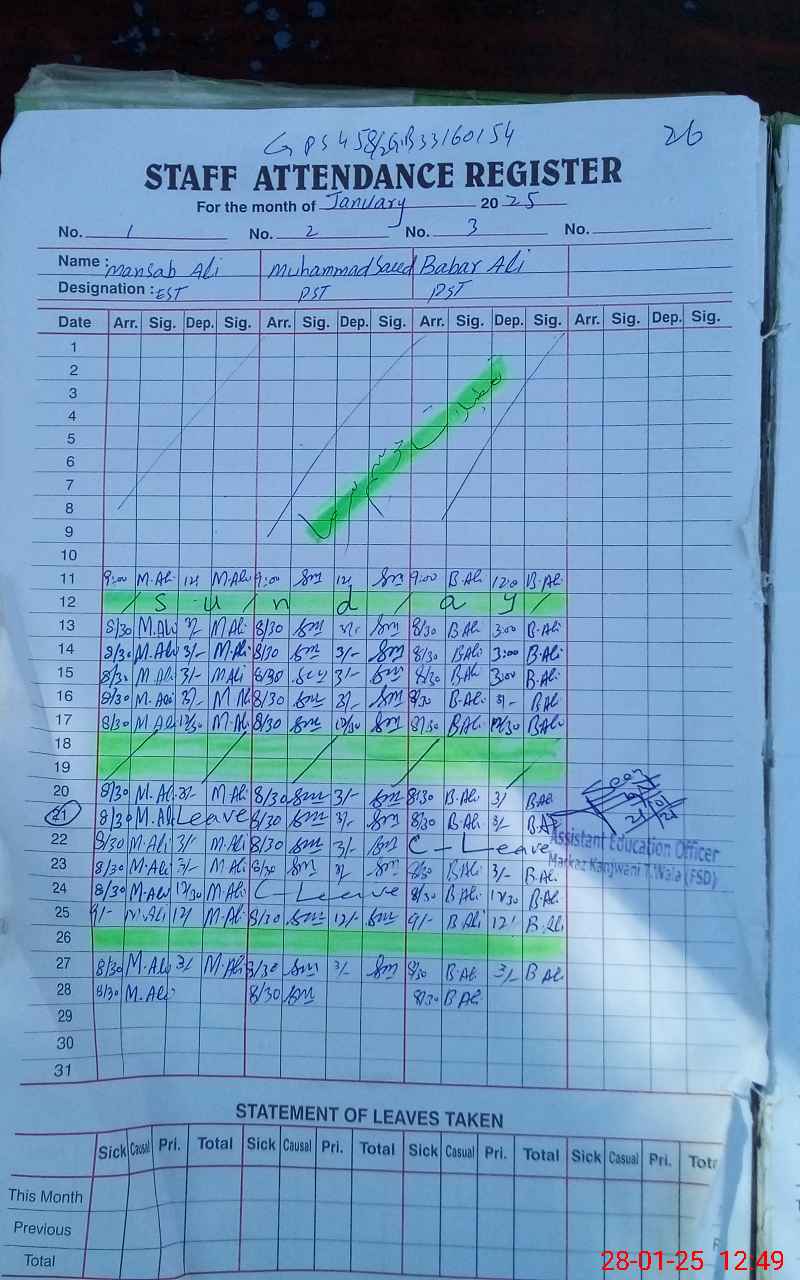 GPS 458/2GB 33160154 26
STAFF ATTENDANCE REGISTER
For the month of January 2025
No. 1 No. 2 No. 3 No.
Name : Mansab Ali Muhammad Saeed Babar Ali
Designation : EST PST PST
Date Arr. Sig. Dep. Sig. Arr. Sig. Dep. Sig. Arr. Sig. Dep. Sig. Arr. Sig. Dep. Sig.
1
2
3
4
5
6
7
8
9
10
11 9:00 M.Ali 12/ M.Ali 9:00 Sm 12/ Sm 9:00 B.Ali 12:0 B.Ali
12 Sunday
13 8/30 M.Ali 3/- M Ali 8/30 Sm 3/- Sm 8/30 B Ali 3:00 B.Ali
14 8/30 M.Ali 3/- M.Ali 8/30 Sm 3/- Sm 8/30 B Ali 3:00 B.Ali
15 8/30 M.Ali 3/- M Ali 8/30 3/- Sm 8/30 B Ali 3:00 B.Ali
16 8/30 M.Ali 3/- M Ali 8/30 Sm 3/- Sm 8/30 B.Ali 3/- B Ali
17 8/30 M Ali 12/30 M.Ali 8/30 Sm 12/30 Sm 8/30 B Ali 12/30 B Ali
18
19
20 8/30 M.Ali 3/- M Ali 8/30 Sm 3/- Sm 8:30 B.Ali 3/ B Ali
21 8/30 M.Ali Leave 8/30 Sm 3/- Sm 8/30 B.Ali 3/- B.Ali
22 8/30 M.Ali 3/- M Ali 8/30 Sm 3/- Sm C-Leave
Assistant Education Officer
23 8/30 M.Ali 3/- M Ali 8/30 Sm 3/ Sm 8/30 B Ali 3/- B.Ali
Markaz Kanjwani T.Wala (FSD)
24 8/30 M.Ali 12/30 M.Ali C-Leave 8/30 B.Ali 12/30 B.Ali
25 9/- M.Ali 12/ M.Ali 8/30 Sm 12/- Sm 9/- B Ali 12/ B.Ali
26
27 8/30 M.Ali 3/- M.Ali 8/30 Sm 3/- Sm 8/30 B.Ali 3/- B Ali
28 8/30 M.Ali 8/30 Sm 8/30 B Ali
29
30
31
STATEMENT OF LEAVES TAKEN
Sick Causal Pri. Total Sick Causal Pri. Total Sick Casual Pri. Total Sick Casual Pri. Tota
This Month
Previous
Total
28-01-25 12:49